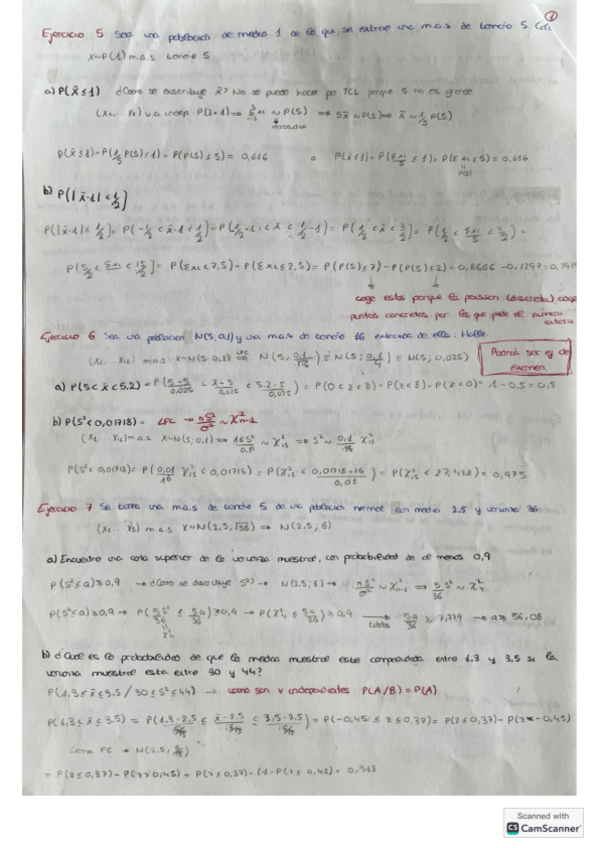 ①
Ejercicio 5 Sea una población de media 1 de la que se extrae una m.a.s de tamaño 5. Calc
X~P(1) m.a.s tamaño 5
a) P(x̄ ≤ 1) ¿Como se distribuye x̄? No se puede hacer por TCL porque 5 no es grande
(x₁... x₅) v.a indep P(λ=1) ⟹ Σxi ~ P(5) ⟹ 5x̄ ~ P(5) ⟹ x̄ ~ 1/5 P(5)
P(x̄ ≤ 1) = P(1/5 P(5) ≤ 1) = P(P(5) ≤ 5) = 0,616 o P(x̄ ≤ 1) = P(Σxi/5 ≤ 1) = P(Σxi ≤ 5) = 0,616
P(5)
b) P[|x̄-1| < 1/2]
P(|x̄-1| < 1/2) = P(-1/2 < x̄-1 < 1/2) = P(-1/2 + 1 < x̄ < 1/2 + 1) = P(1/2 < x̄ < 3/2) = P(1/2 < Σxi/5 < 3/2) =
P(5/2 < Σxi < 15/2) = P(Σxi < 7,5) - P(Σxi ≤ 2,5) = P(P(5) ≤ 7) - P(P(5) ≤ 2) = 0,8666 - 0,1247 = 0,741
coge estos porque la poisson (discreta) coge
puntos concretos por los que pasa de número
entero
Ejercicio 6 Sea una población N(5, 0,1) y una m.a.s de tamaño 16 extraida de ella: Halle.
(x₁... x₁₆) m.a.s x~N(5, 0,1) N(5, 0,1/√16) ≡ N(5, 0,1/4) ≡ N(5, 0,025)
Podría ser ej de examen
a) P(5 < x̄ < 5,2) = P(5-5/0,025 < x̄-5/0,025 < 5,2-5/0,025) = P(0 < z < 8) = P(z < 8) - P(z < 0) = 1 - 0,5 = 0,5
b) P(S² < 0,01718) = LFC → nS²/σ² ~ χ²n-1
(x₁... x₁₆) m.a.s x~N(5, 0,1) ⟹ 16S²/0,1² ~ χ²15 ⟹ S² ~ 0,1²/16 χ²15
P(S² < 0,01718) = P(0,01/16 χ²15 < 0,01718) = P(χ²15 < 0,01718·16/0,01) = P(χ²15 < 27,488) = 0,975
Ejercicio 7 Se toma una m.a.s de tamaño 5 de una población normal con media 2,5 y varianza 36
(x₁... x₅) m.a.s x~N(2,5, √36) ⟹ N(2,5; 6)
a) Encuentre una cota superior de la varianza muestral, con probabilidad de al menos 0,9
P(S² ≤ a) ≥ 0,9 → ¿Como se distribuye S²? → N(2,5; 6) → nS²/σ² ~ χ²n-1 ⟹ 5S²/36 ~ χ²4
P(S² ≤ a) ≥ 0,9 → P(5S²/36 ≤ 5a/36) ≥ 0,9 → P(χ²4 ≤ 5a/36) ≥ 0,9 → 5a/36 ≥ 7,779 → a ≥ 56,08
χ²4
b) ¿Cual es la probabilidad de que la media muestral este comprendida entre 1,3 y 3,5 si la
varianza muestral esta entre 30 y 44?
P(1,3 ≤ x̄ ≤ 3,5 / 30 ≤ S² ≤ 44) → como son v independientes P(A/B) = P(A)
P(1,3 ≤ x̄ ≤ 3,5) = P(1,3-2,5 / 6/√5 ≤ x̄-2,5 / 6/√5 ≤ 3,5-2,5 / 6/√5) = P(-0,45 ≤ z ≤ 0,37) = P(z ≤ 0,37) - P(z ≤ -0,45)
FC → N(2,5, 6/√5)
= P(z ≤ 0,37) - P(z > 0,45) = P(z ≤ 0,37) - (1 - P(z ≤ 0,45)) = 0,318
Scanned with
CS CamScanner